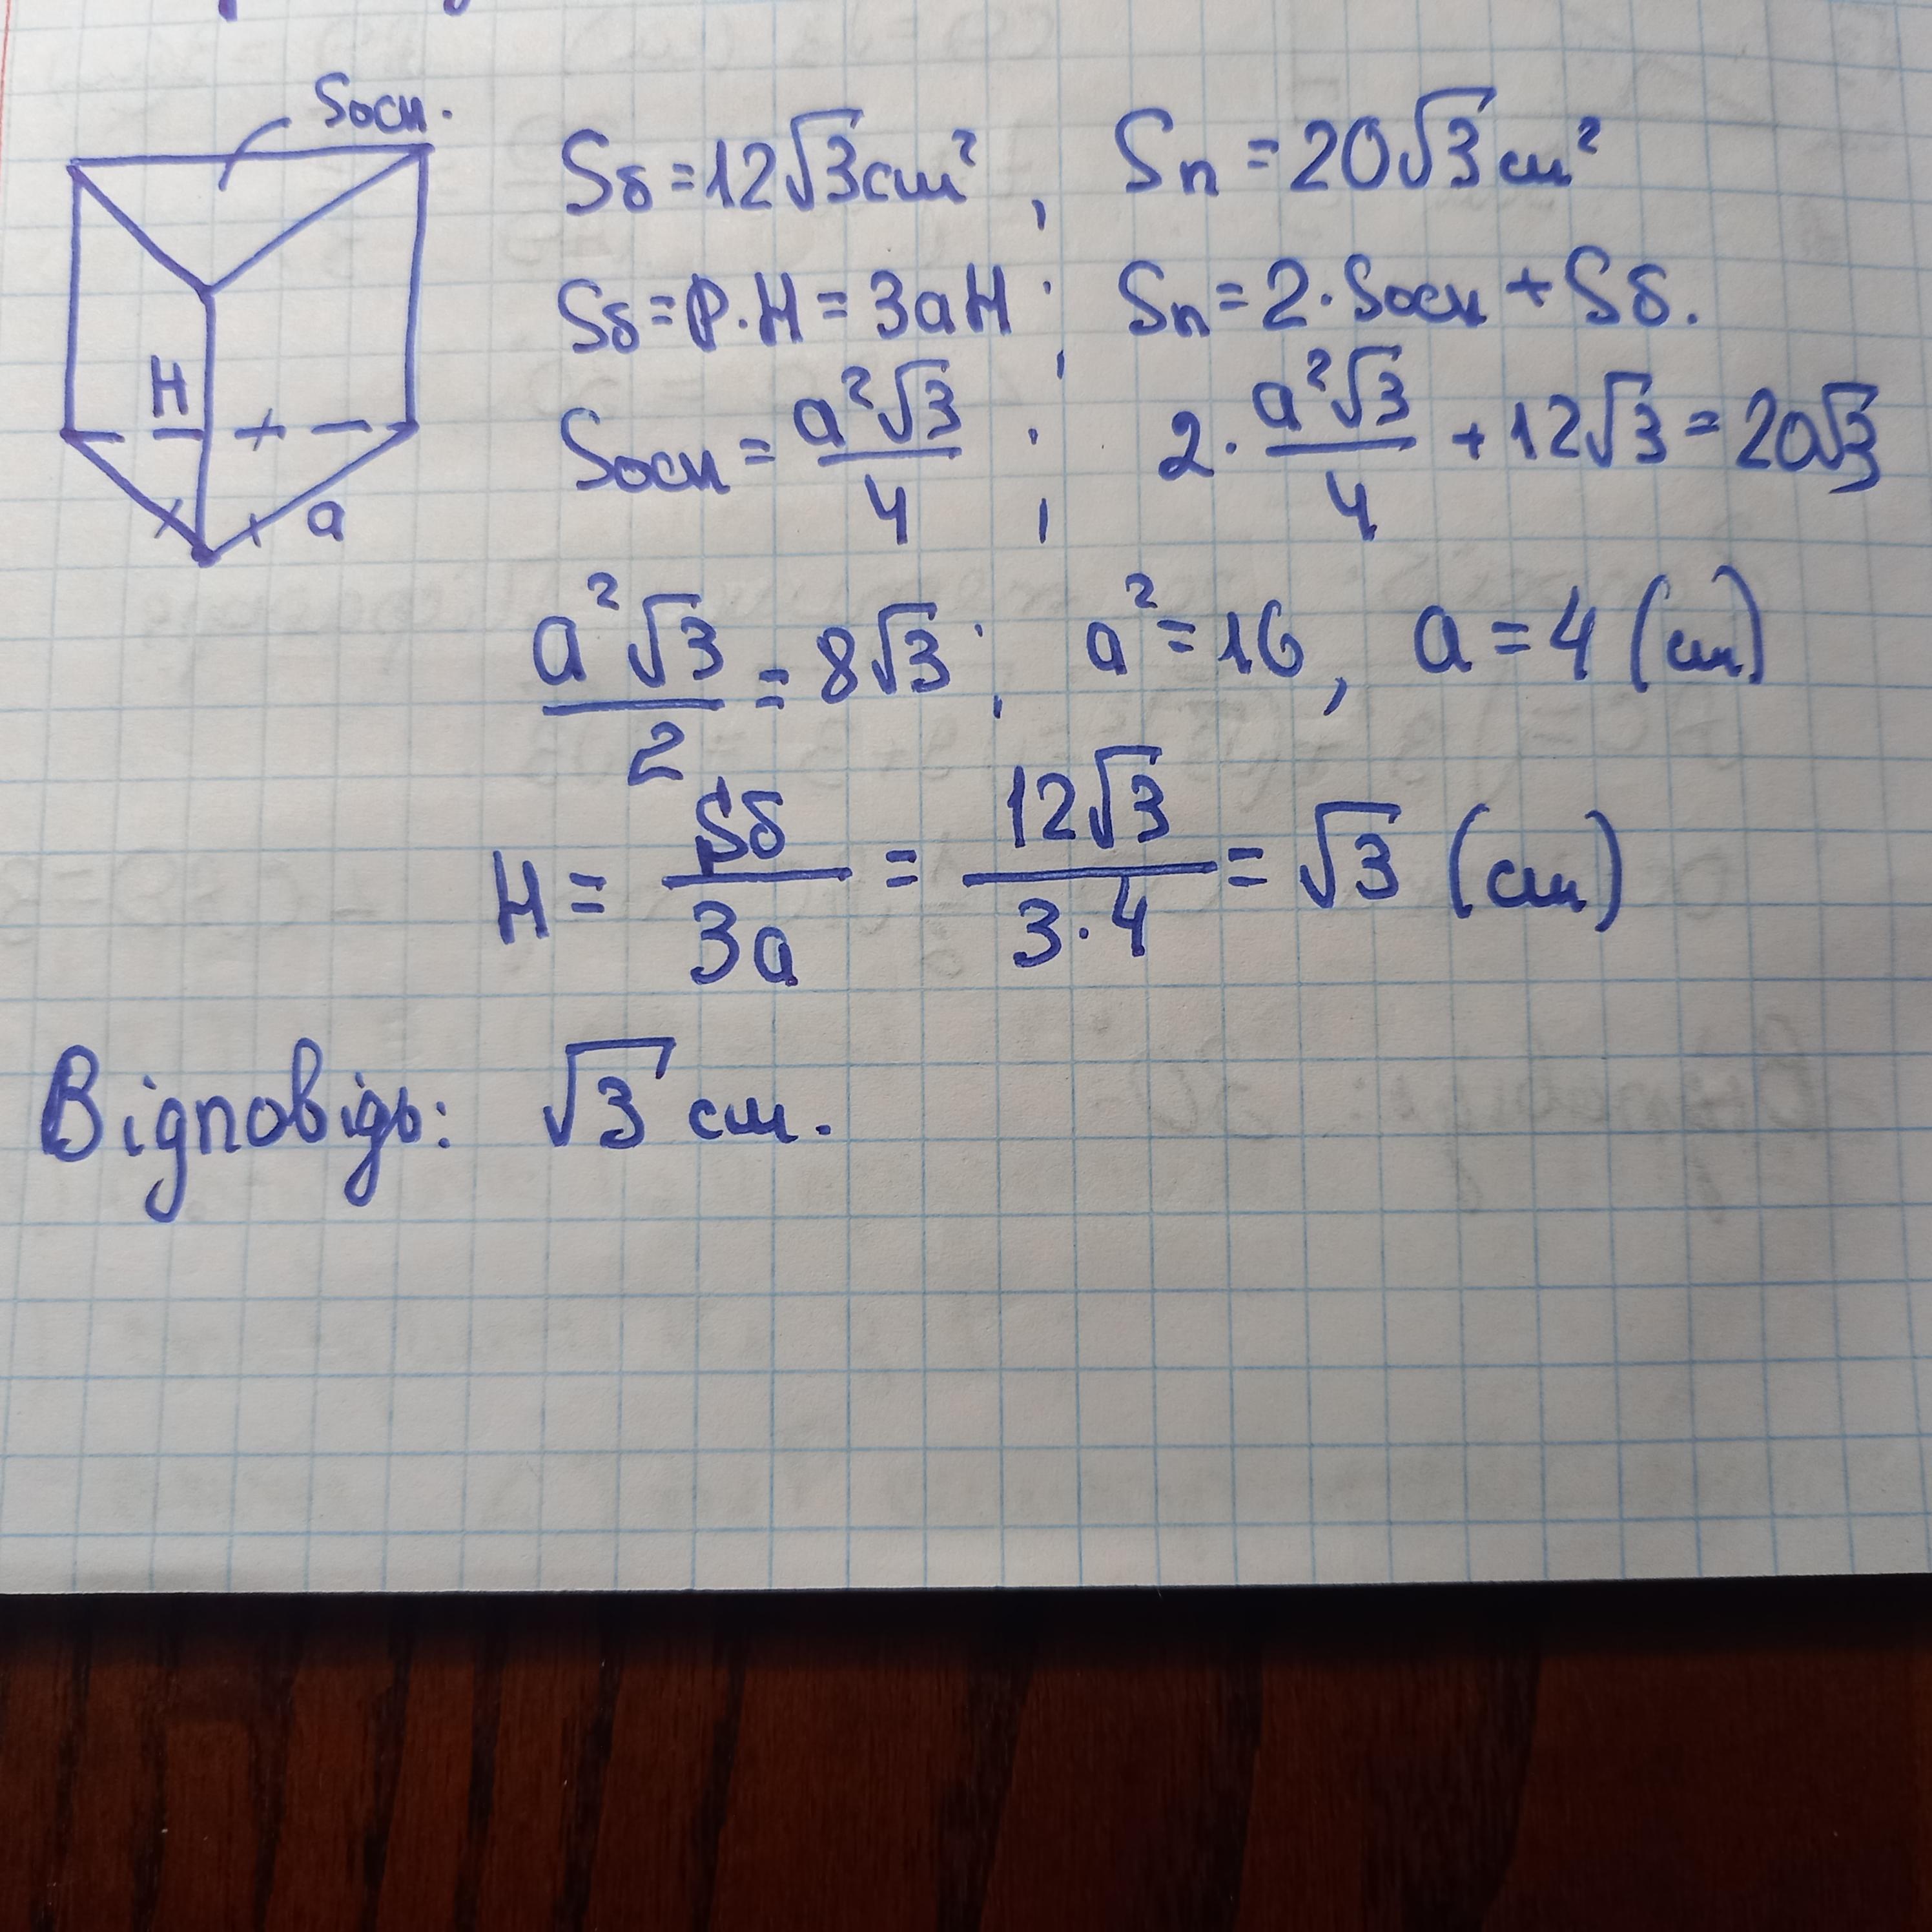 Sосн.
Sб = 12√3 см², Sп = 20√3 см²
Sб = P·H = 3aH; Sп = 2·Sосн + Sб.
Sосн = a²√3/4; 2·a²√3/4 + 12√3 = 20√3
H
a
a²√3/2 = 8√3; a² = 16, a = 4 (см)
H = Sб/3a = 12√3/3·4 = √3 (см)
Відповідь: √3 см.